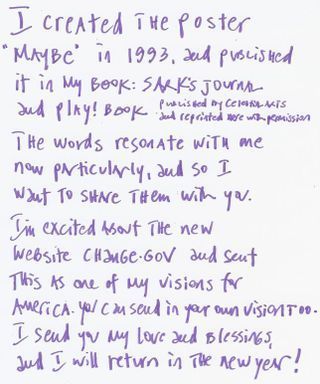 I created the poster
"Maybe" in 1993, and published
it in my book: SARK's Journal
and Play! Book published by Celestial Arts
and reprinted here with permission
The words resonate with me
now particularly, and so I
want to share them with you.
I'm excited about the new
website change.gov and sent
this as one of my visions for
America. you can send in your own vision too.
I send you my love and blessings,
and I will return in the new year!